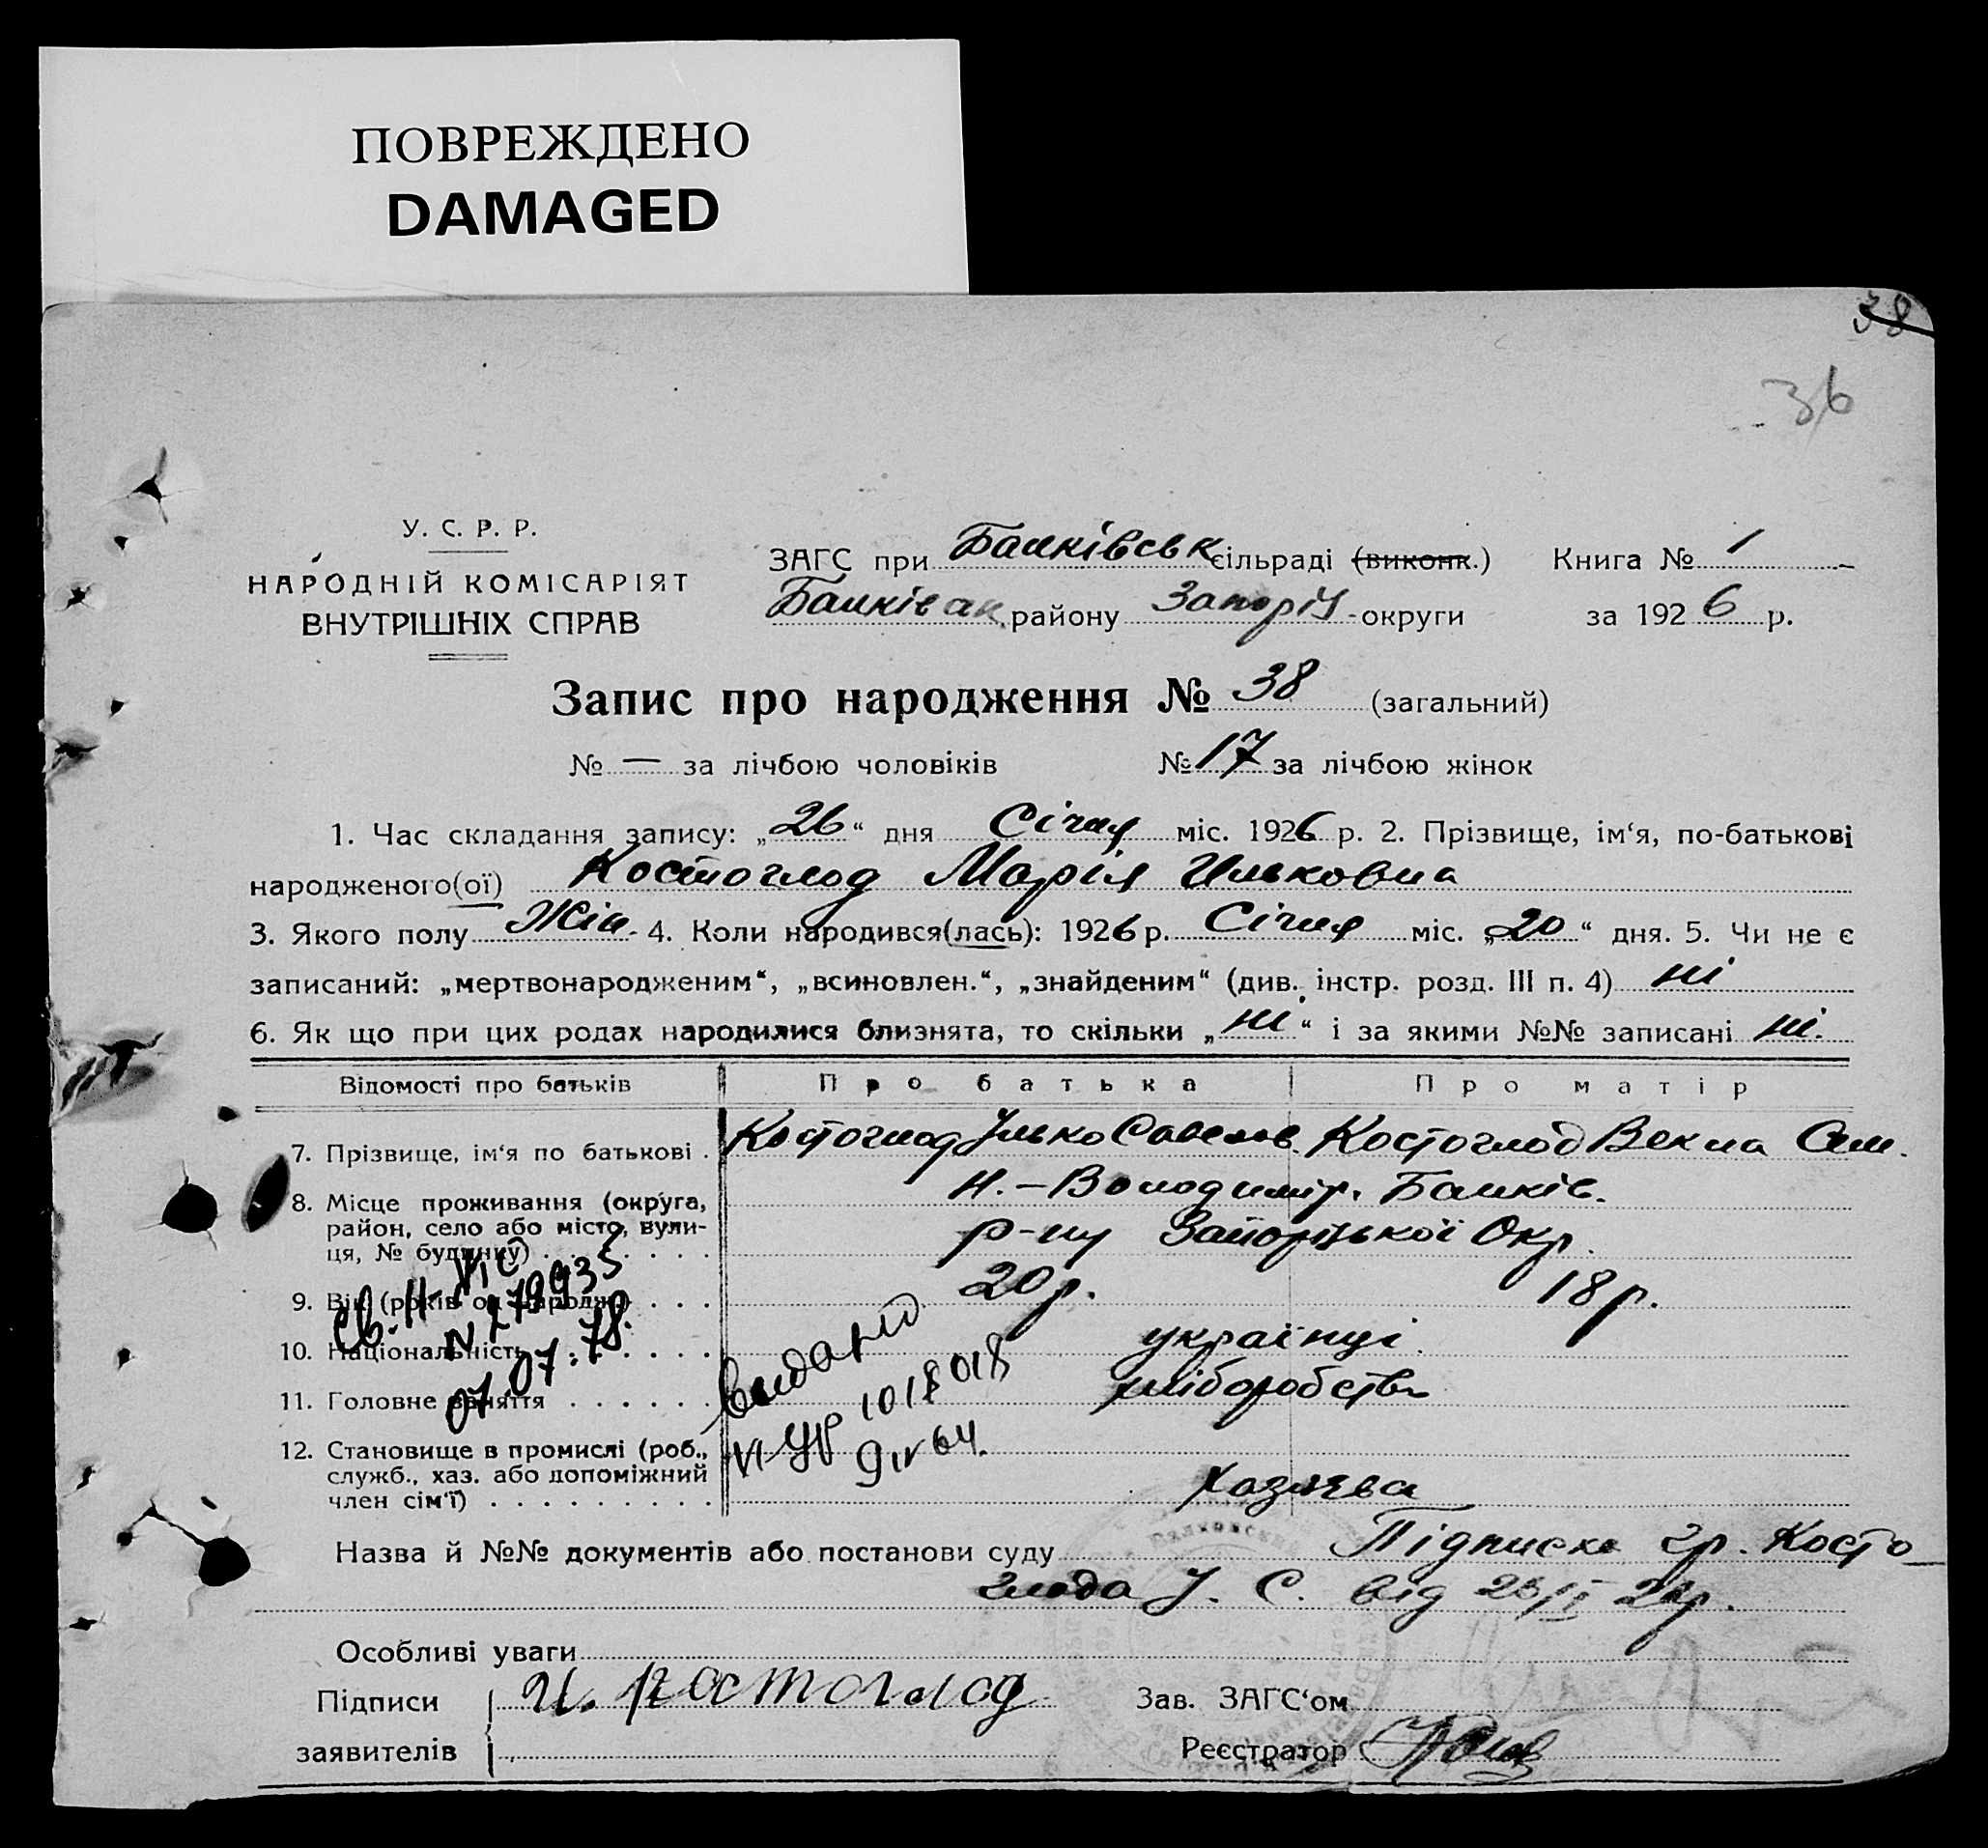 ПОВРЕЖДЕНО
DAMAGED
38
36
У. С. Р. Р.
НАРОДНІЙ КОМІСАРІЯТ
ВНУТРІШНІХ СПРАВ
ЗАГС при Балківськ сільраді (виконк.) Книга № 1
Балківськ. району Запоріз. округи за 1926 р.
Запис про народження № 38 (загальний)
№ — за лічбою чоловіків № 17 за лічбою жінок
1. Час складання запису: „26“ дня Січня міс. 1926 р. 2. Прізвище, ім‘я, по-батькові
народженого(ої) Костоглод Марія Ильковна
3. Якого полу Жін. 4. Коли народився(лась): 1926 р. Січня міс. „20“ дня. 5. Чи не є
записаний: „мертвонародженим“, „всиновлен.“, „знайденим“ (див. інстр. розд. III п. 4) ні
6. Як що при цих родах народилися близнята, то скільки „ні“ і за якими №№ записані ні.
Відомості про батьків Про батька Про матір
7. Прізвище, ім‘я по батькові . Костоглод Улько Савелов. Костоглод Векла Сем.
8. Місце проживання (округа, Н.-Володимір. Балків.
район, село або місто, вули-
ця, № будинку) . . . . . . р-ну Запорізької Окр.
9. Вік (років од народж.) . . . 20 р. 18 р.
10. Національність . . . . . . українці.
11. Головне заняття . . . . . . хліборобство
12. Становище в промислі (роб.,
служб., хаз. або допоміжний
член сім‘ї) . . . . . . . . . Хазяєва
Св. II-
N 279935
07.07.78.
Видано
VI-УР 1018018
9 IV 64.
Назва й №№ документів або постанови суду Підписка гр. Косто-
глода У. С. від 26/I 26 р.
Особливі уваги
Підписи И. Костоглод Зав. ЗАГС‘ом
заявителів Реєстратор